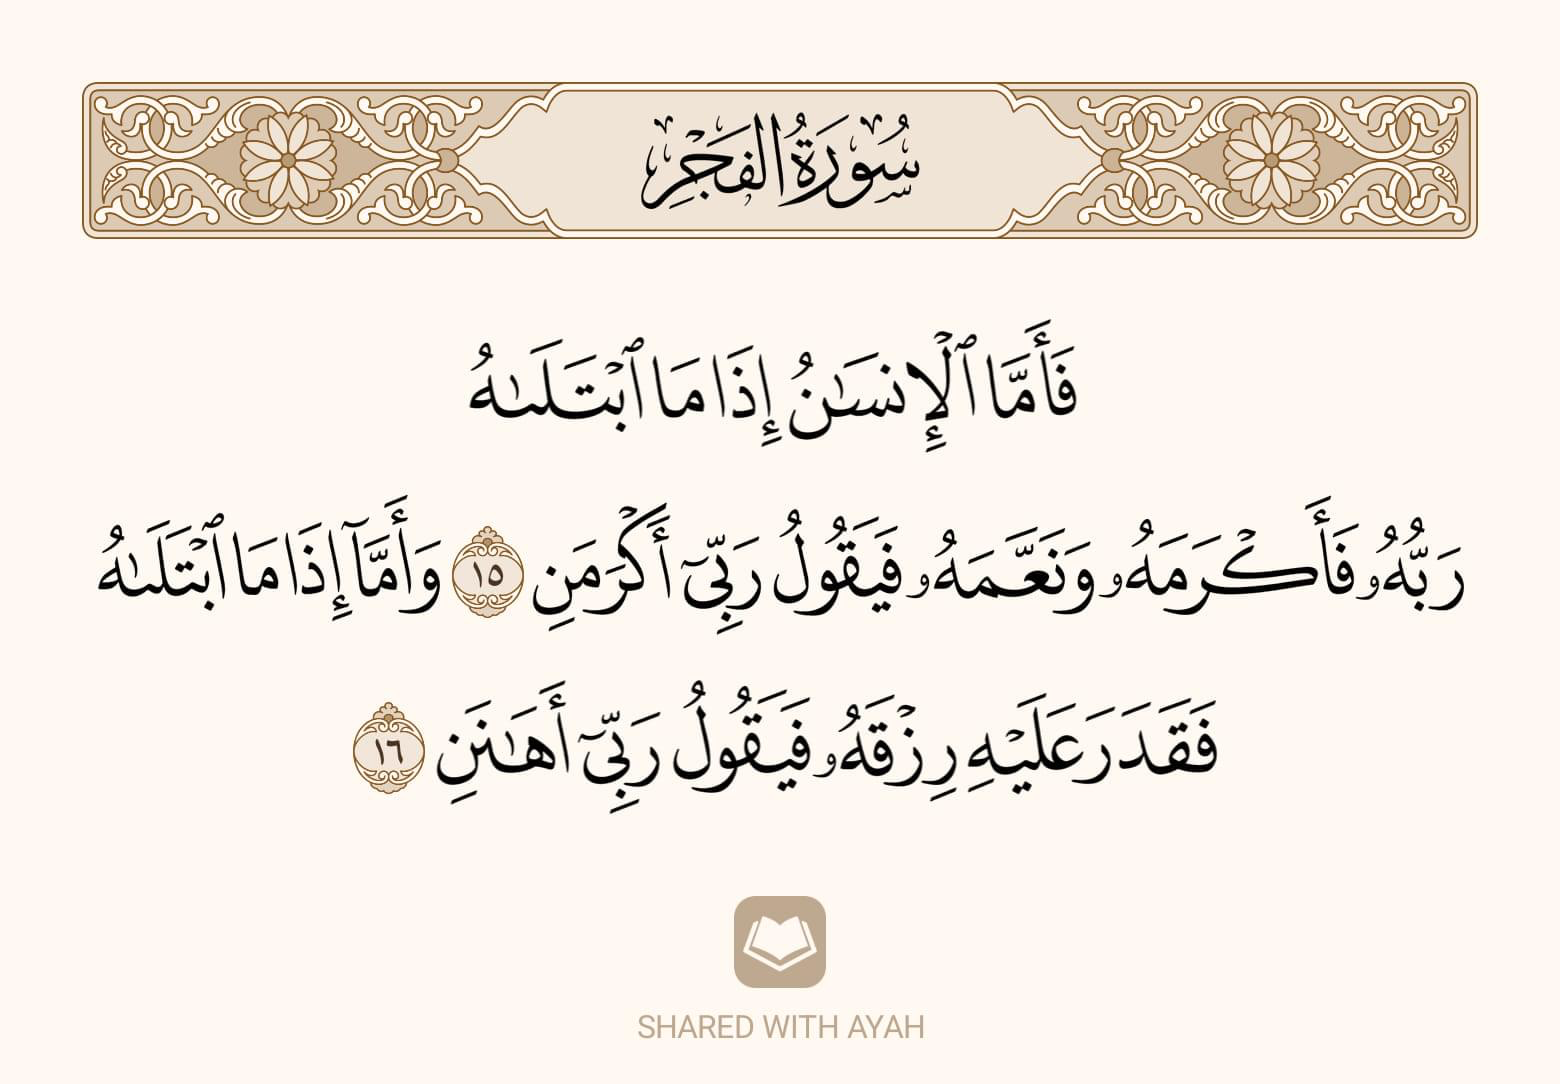 سُورَةُ الفَجْرِ
فَأَمَّا ٱلْإِنسَـٰنُ إِذَا مَا ٱبْتَلَىٰهُ
رَبُّهُۥ فَأَكْرَمَهُۥ وَنَعَّمَهُۥ فَيَقُولُ رَبِّىٓ أَكْرَمَنِ ١٥ وَأَمَّآ إِذَا مَا ٱبْتَلَىٰهُ
فَقَدَرَ عَلَيْهِ رِزْقَهُۥ فَيَقُولُ رَبِّىٓ أَهَـٰنَنِ ١٦
SHARED WITH AYAH